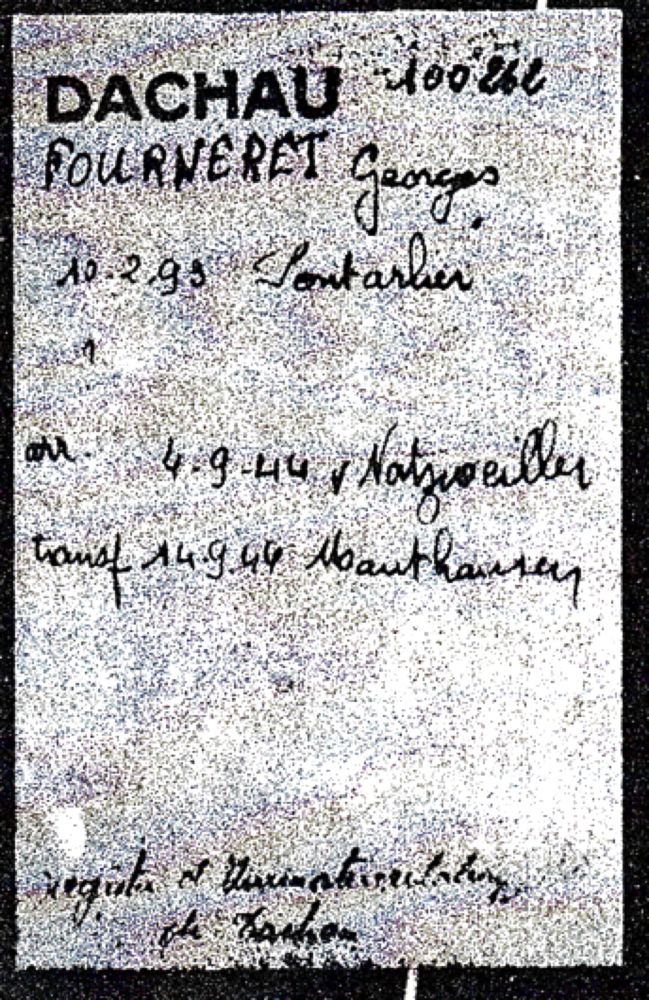 DACHAU 100262
FOURNERET Georges
10.2.93 Pontarlier
1
arr. 4-9-44 v Natzweiller
transf 14.9.44 Mauthausen
registre et
de Dachau